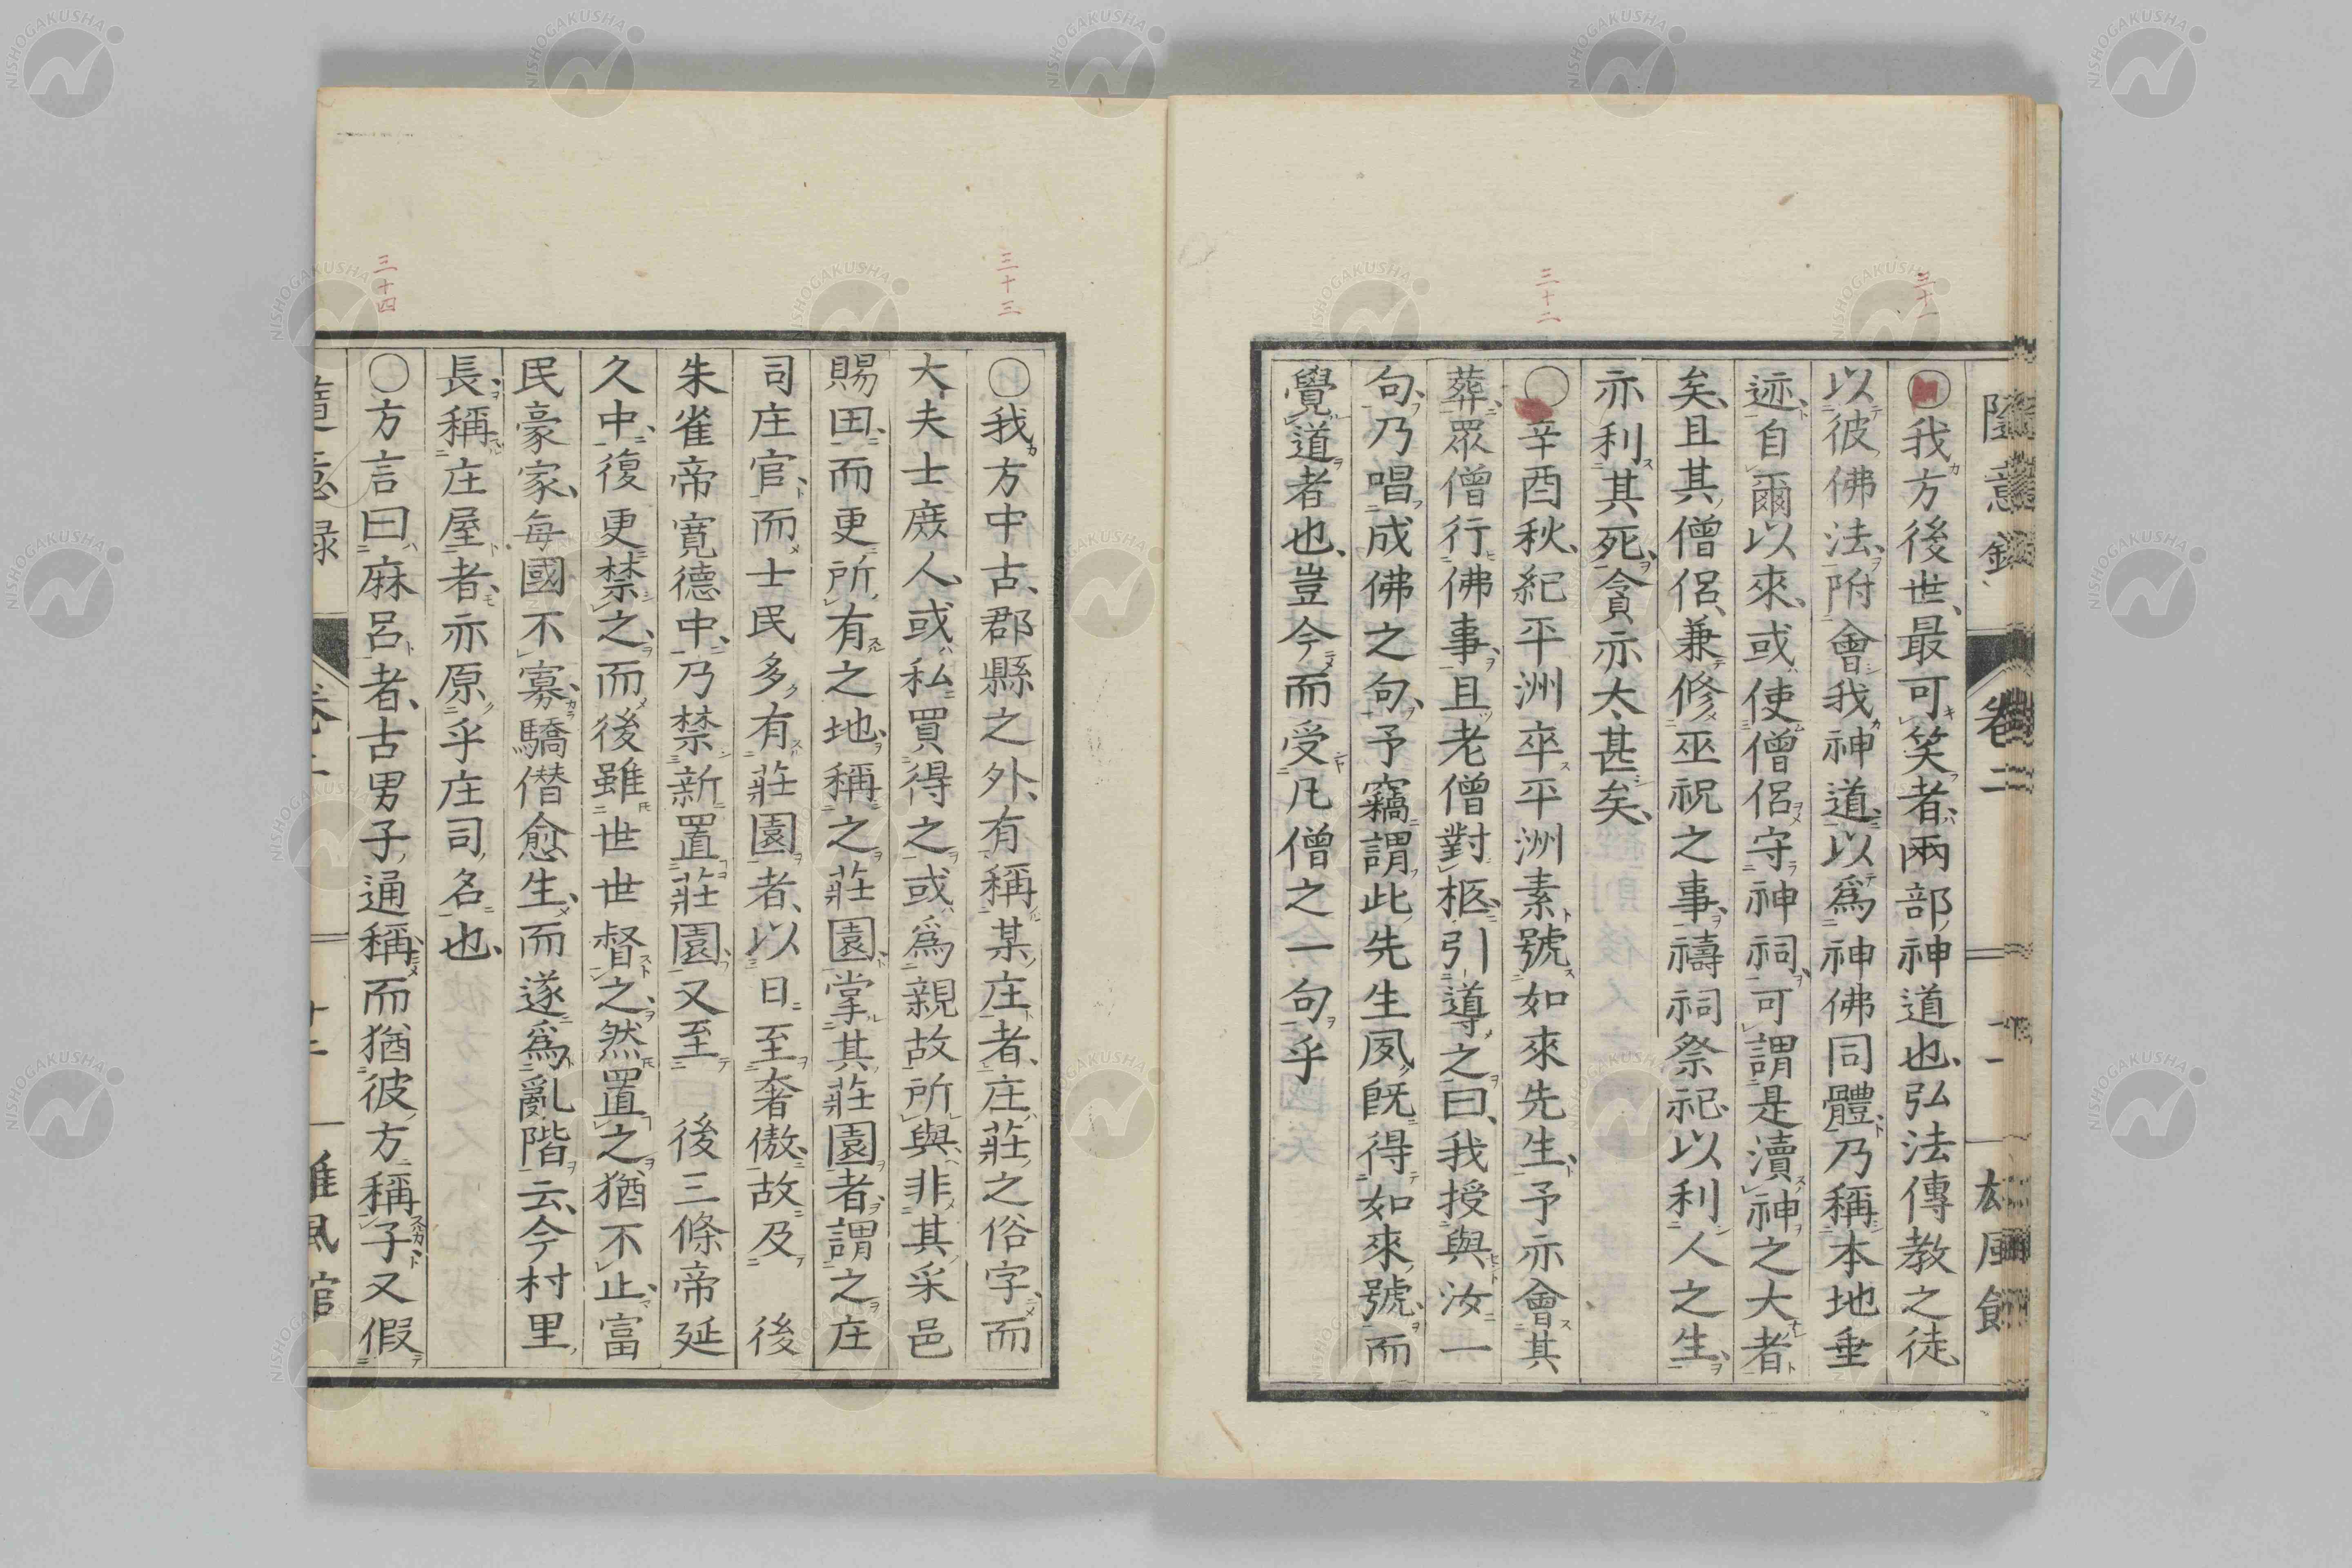 三十一
三十二
〇我方後世、最可笑者、兩部神道也、弘法傳教之徒
以彼佛法、附會我神道、以爲神佛同體、乃稱本地垂
迹、自爾以來、或使僧侶守神祠、可謂是瀆神之大者
矣、且其僧侶、兼修巫祝之事、禱祠祭祀、以利人之生、
亦利其死、貪亦太甚矣、
〇辛酉秋、紀平洲卒、平洲素號如來先生、予亦會其
葬、眾僧行佛事、且老僧對柩、引導之曰、我授與汝一
句、乃唱成佛之句、予竊謂此先生夙既得如來號、而
覺道者也、豈今而受凡僧之一句乎
卷二
三十三
三十四
〇我方中古、郡縣之外、有稱某庄者、庄莊之俗字、而
大夫士庻人、或私買得之、或爲親故所與、非其采邑
賜田、而更所有之地、稱之莊園、掌其莊園者、謂之庄
司庄官、而士民多有莊園者、以日至奢傲、故及　後
朱雀帝寛德中、乃禁新置莊園、又至　後三條帝延
久中、復更禁之、而後雖世世督之、然置之猶不止、富
民豪家、每國不寡、驕僣愈生、而遂爲亂階云、今村里
長、稱庄屋者、亦原乎庄司名也、
〇方言曰麻呂者、古男子通稱、而猶彼方稱子、又假